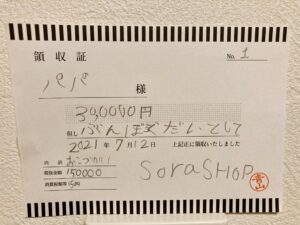 領収証
No. 1
パパ 様
30,0000円
但し ぶんぼぐだいとして
2021年7月12日 上記正に領収いたしました
内訳 おこづかい
税抜金額 150000
消費税額等
SoraSHOP
青山